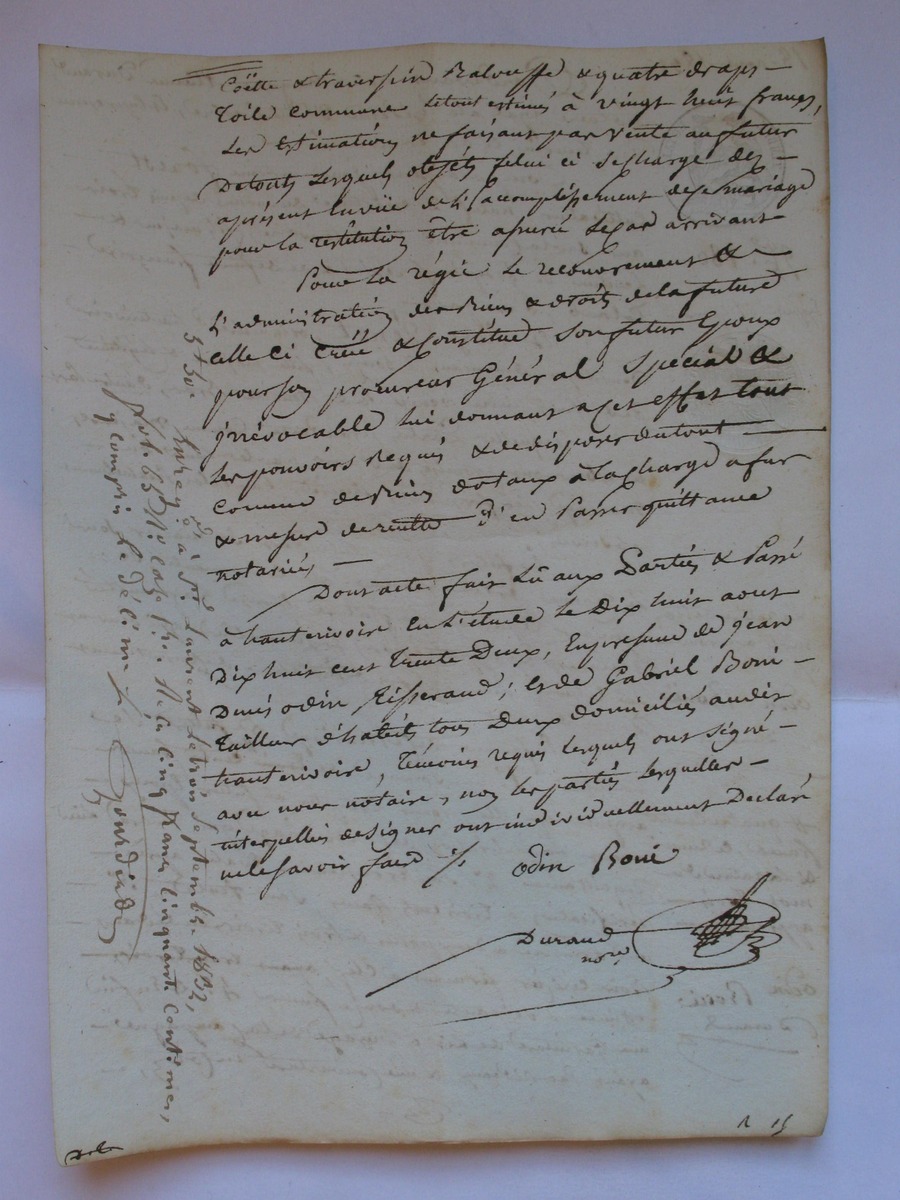 Coëtte & traversin Balouffe & quatre draps
toile commune le tout estimés à vingt huit francs,
les Estimations ne faisant pas vente au futur
De tous lesquels objets celui ci se charge dès
aprésent En vüe de l'accomplissement de ce mariage
pour la restitution être assuré le cas arrivant
Pour la régie le recouvrement &
L'administration des Biens & droits de la future
celle ci Créé & Constitue son futur Epoux
pour son procureur Général Spécial &
jrrévocable lui donnant a cet effet tout
les pouvoirs Requis & de disposer du tout
comme de Biens dotaux à la charge a fur
& mesure de recette d'en Passer quittance
notariées
Dont acte fait Lû aux Parties & Passé
à hauterivoire En L'étude le Dix huit aout
Dix huit cent Trente Deux, En présence de jean
Denis odin Tisserand, & de Gabriel Boni
Tailleur d'habits tous Deux domiciliés audit
hauterivoire, Témoins requis lesquels ont signé
avec nous notaire, non les parties lesquelles
interpellés de signer ont individuellement Déclaré
ne le Savoir faire ./.
odin Boni
Durand
nore
5f 50c
Enreg. à St. Laurent le trois Septembre 1832,
fol. 65 Vo. case Reçu cinq francs cinquante Centimes,
y compris le décime